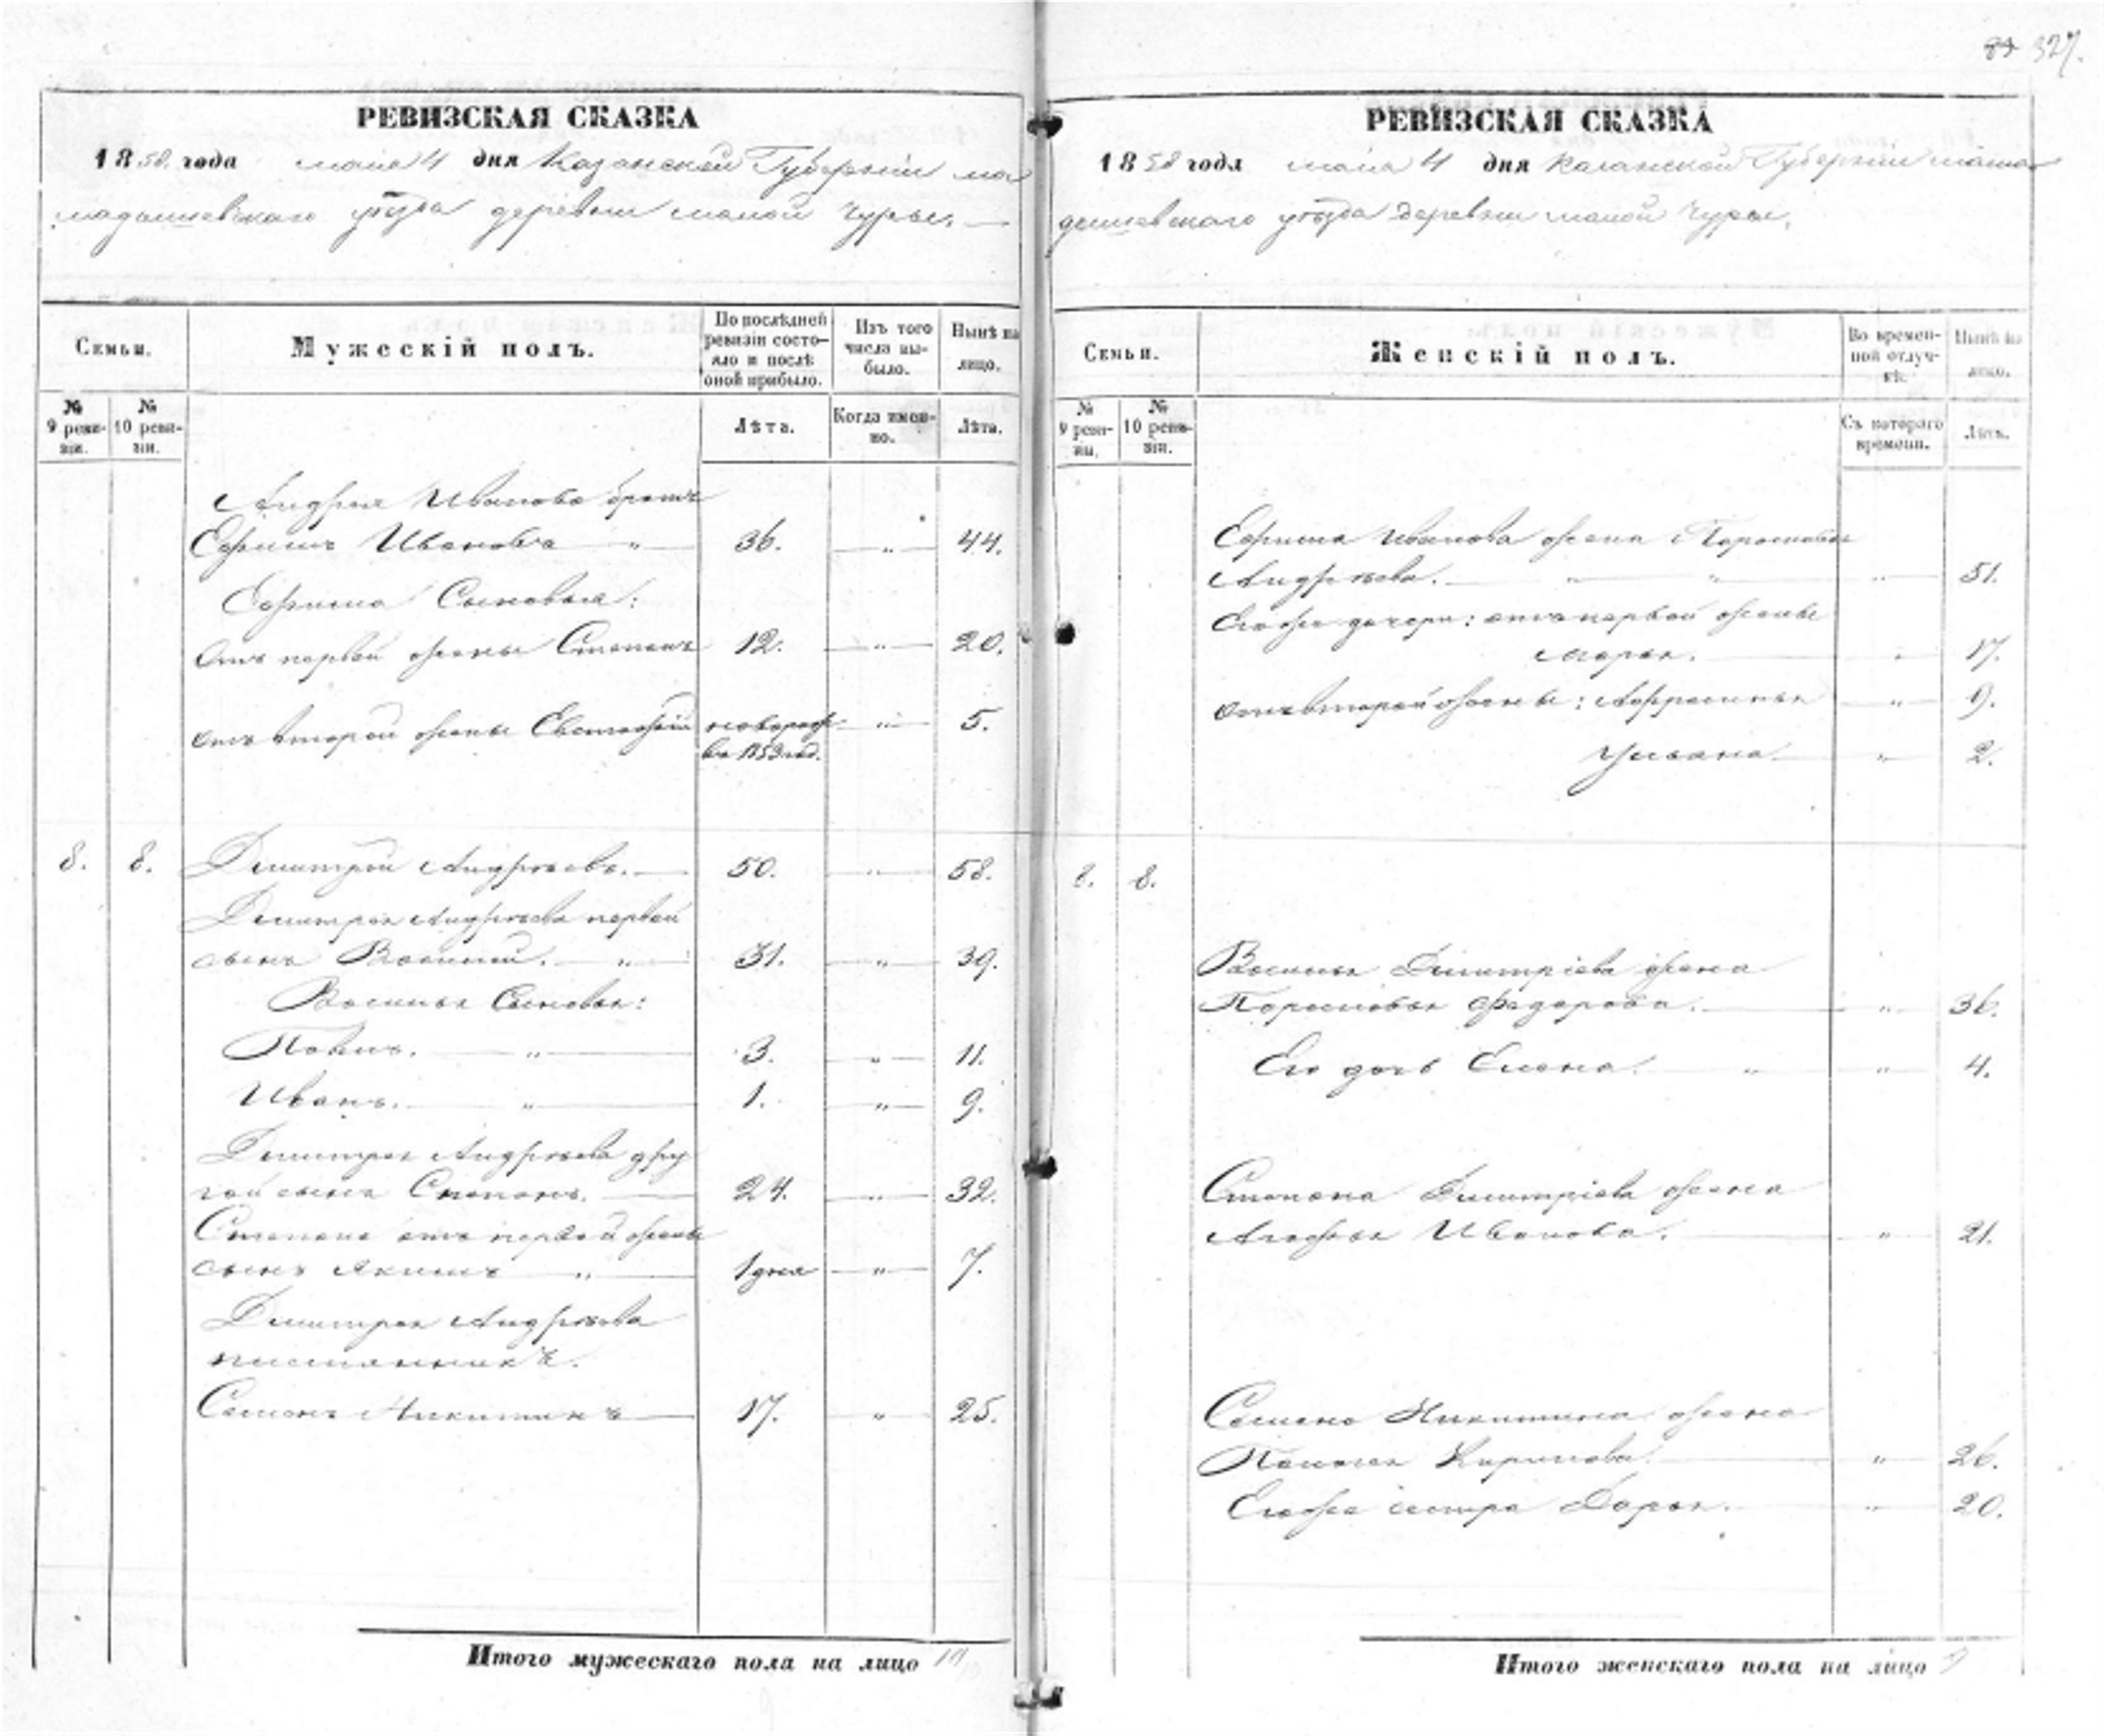 327.
РЕВИЗСКАЯ СКАЗКА
1858 года маія 4 дня Казанской Губерніи ма
мадышевскаго уѣзда деревни малой Чуры.
Семьи.
Мужескій полъ.
По послѣдней ревизіи состояло и послѣ оной прибыло.
Изъ того числа выбыло.
Нынѣ на лицо.
№ 9 ревизіи.
№ 10 ревизіи.
Лѣта.
Когда именно.
Лѣта.
Андрея Иванова братъ
Ефимъ Ивановъ " 36. " 44.
Ефима Сыновья:
Отъ первой жены Степанъ 12. " 20.
отъ второй жены Евстафій новорож " 5.
въ 1853 год.
8. 8. Димитрій Андрѣевъ. 50. " 58.
Димитрія Андрѣева первой
сынъ Василій. " 31. " 39.
Василья Сыновья:
Павелъ. " 3. " 11.
Иванъ. " 1. " 9.
Димитрія Андрѣева дру
гой сынъ Степанъ. 24. " 32.
Степана отъ первой жены
сынъ Якимъ " 1 дня " 7.
Димитрія Андрѣева
племянникъ.
Семенъ Никитинъ 17. " 25.
Итого мужескаго пола на лицо 10
РЕВИЗСКАЯ СКАЗКА
1858 года маія 4 дня Казанской Губерніи мама
дышевскаго уѣзда деревни малой Чуры.
Семьи.
Женскій полъ.
Во временной отлучкѣ.
Нынѣ на лицо.
№ 9 ревизіи.
№ 10 ревизіи.
Съ котораго времени.
Лѣта.
Ефима Иванова жена Парасковья
Андрѣева. " " " 51.
Егоже дочери: отъ первой жены
Марья. " 17.
отъ второй жены: Афросинья " 9.
Ульяна " 2.
8. 8.
Василья Димитріева жена
Парасковья Федорова. " 36.
Его дочь Елена. " " 4.
Степана Димитріева жена
Агафья Иванова. " 21.
Семена Никитина жена
Пелагея Кирилова. " 26.
Егоже сестра Дарья. " 20.
Итого женскаго пола на лицо 9